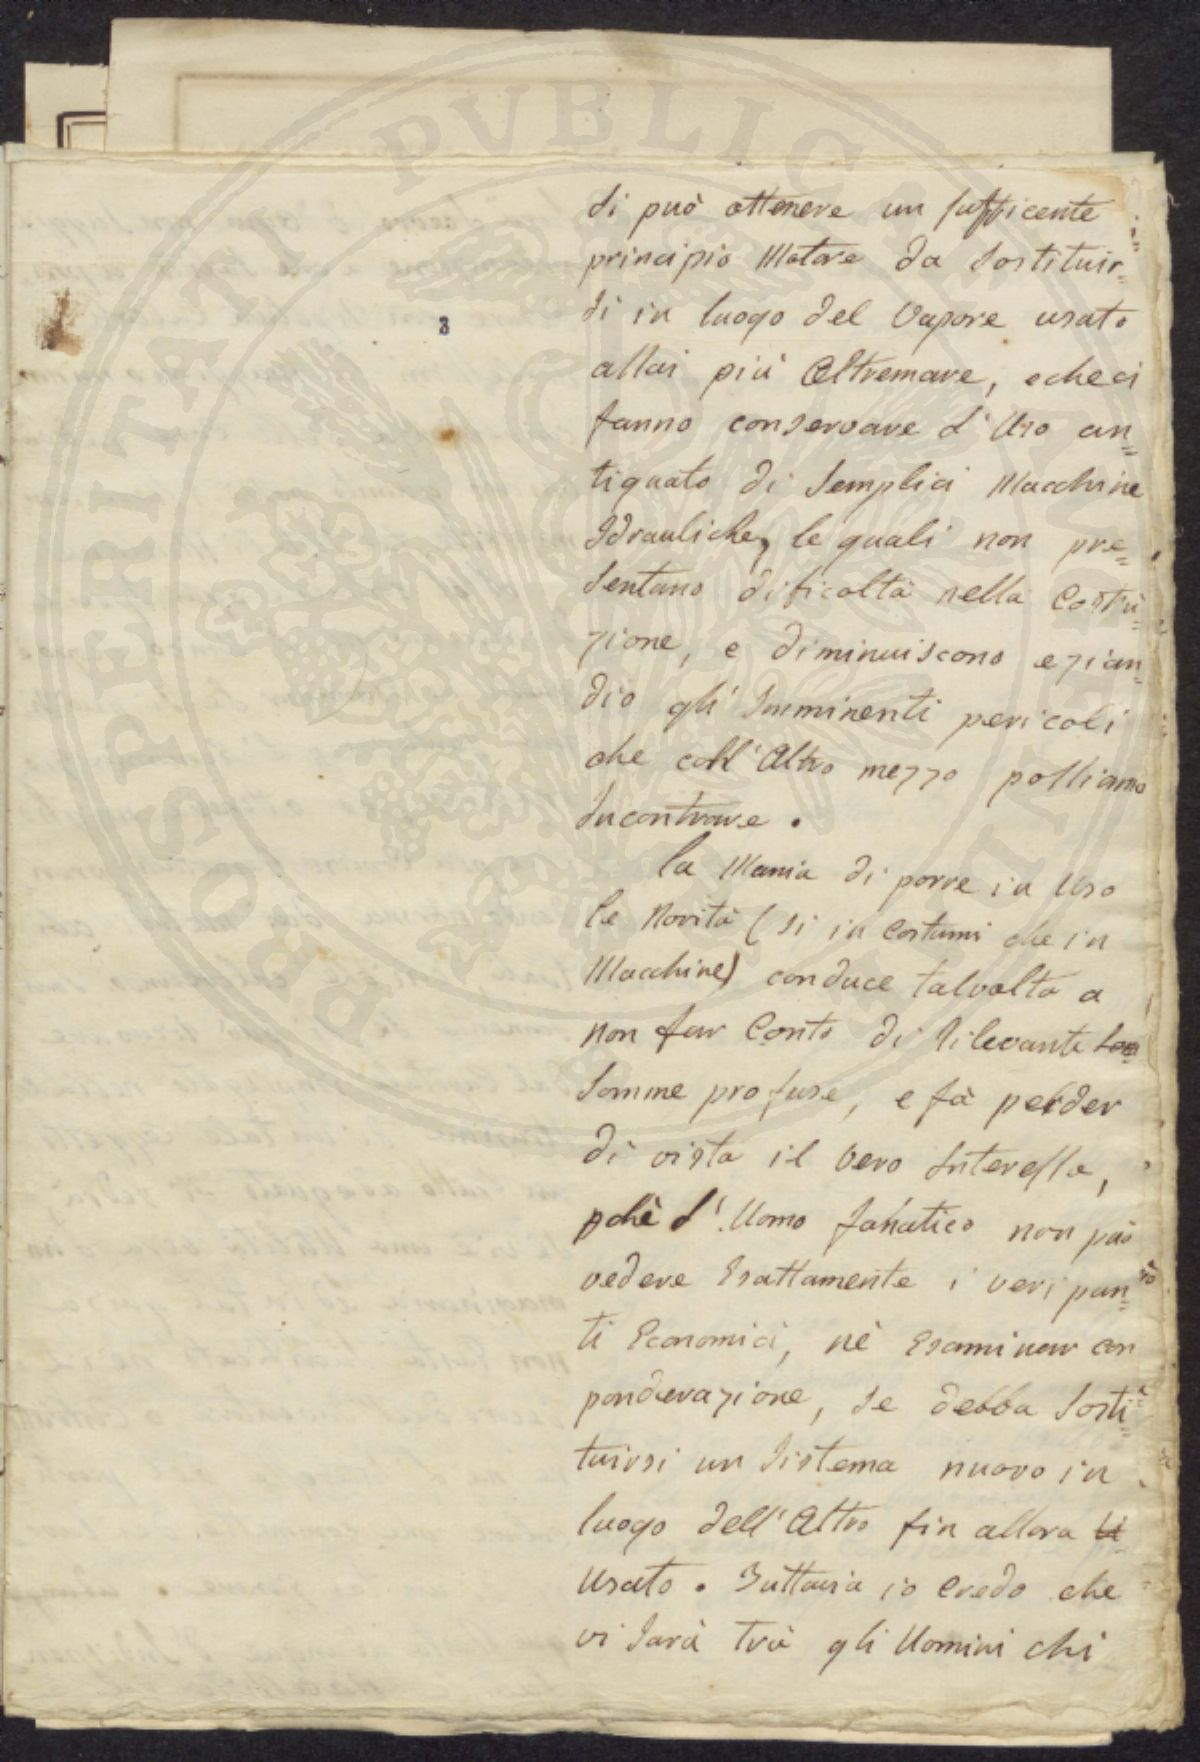 PVBLICAE
PROSPERITATI
3
si può ottenere un sufficente
principio Motore da sostituir=
si in luogo del Vapore usato
assai più Oltremare, e che ci
fanno conservare l'Uso an=
tiquato di semplici Macchine
Idrauliche, le quali non pre=
sentano dificoltà nella Costru=
zione, e diminuiscono ezian=
dio gli Imminenti pericoli
che coll'Altro mezzo possiamo
Incontrare.
la Mania di porre in Uso
le Novità (si in Costumi che in
Macchine) conduce talvolta a
non far Conto di rilevanti
somme profuse, e fà perder
di vista il vero Interesse,
pchè l'Uomo fanatico non può
vedere Esattamente i veri pun=
ti Economici, nè Esaminar con
ponderazione, se debba sosti=
tuirsi un sistema nuovo in
luogo dell'Altro fin allora U
Usato. Tuttavia io Credo che
vi sarà trà gli Uomini chi